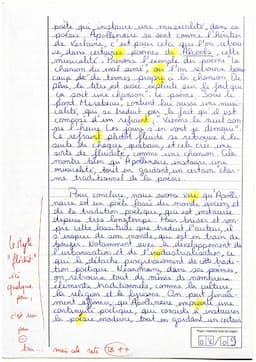 poète qui instaure une musicalité, dans sa
poésie. Apollinaire se sent comme l'héritier
de Verlaine, c'est pour cela que l'on retrouve
, dans certains poèmes de Alcools, cette
musicalité. Prenons l'exemple du poème la
chanson du mal aimé, où l'on retrouve beau
coup de termes propre à la chanson. De
plus, le titre est assez explicite sur le fait que
ça soit une chanson. Le poème Sous le
pont Mirabeau, contient lui aussi une musi-
calité, qui se traduit par le fait qu'il est
composé d'un refrain, "Vienne la nuit son-
ne l'heure Les jours s'en vont je demeure".
Ce refrain plutôt fluide se retrouve à la
suite de chaque quatrain, et cela crée une
sorte de fluidité, comme une chanson. Cela
montre bien qu'Apollinaire instaure une
musicalité, tout en gardant un certain
traditionnel de la poésie.
Pour conclure, nous avons vu qu'Apolli
naire est un poète du monde ancien et
de la tradition poétique, qui est instaurée
depuis très longtemps.
cette lassitude que traduit l'auteur, il
s'inspire de son monde, qui est en train de
bouger. Notamment avec le développement de
l'urbanisation et de l'industrialisation, ce
qui le détache progressivement de cette tradi-
tion poétique. Néanmoins, dans ses poèmes
on retrouve tout de même de nombreux
éléments traditionnels, comme la culture,
la religion et le lyrisme. On peut finale-
ment affirmer, qu'Apollinaire
poétique, qui consiste à instaurer
la poésie moderne tout en gardant un certain
le style
quelque
peu,
c'est un
peu